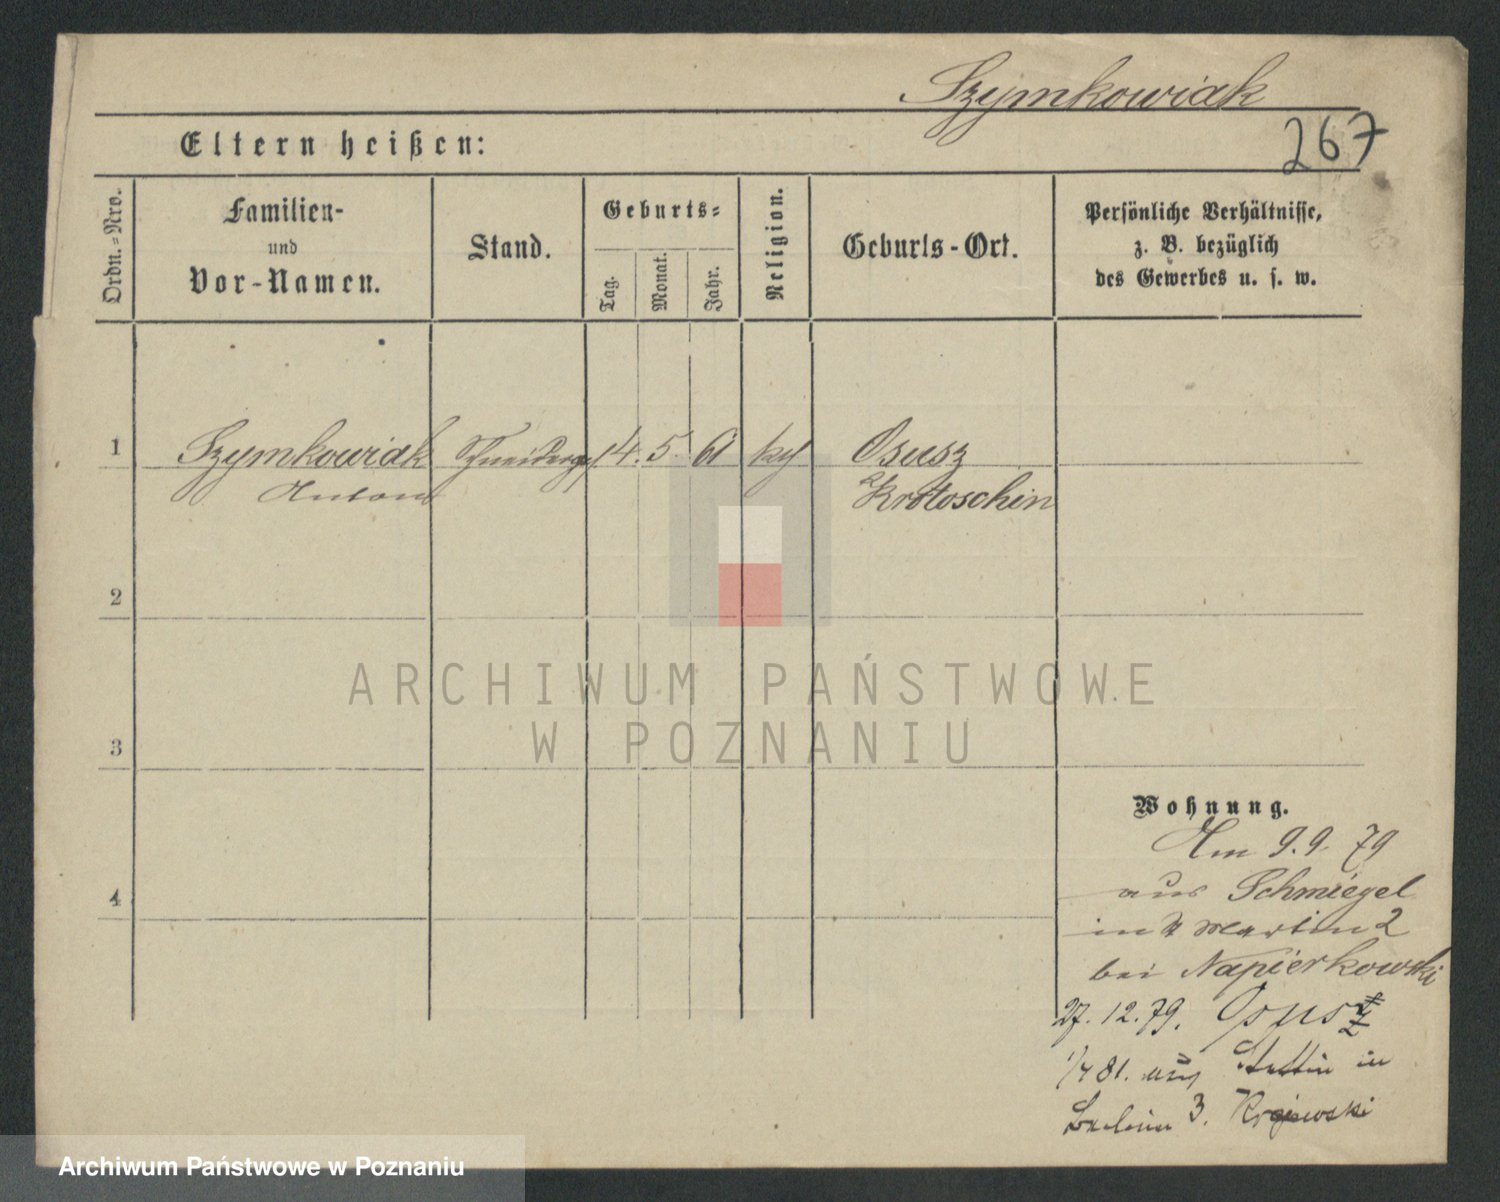 Szymkowiak
267
Eltern heißen:
Ordn.-Nro.
Familien-
und
Vor-Namen.
Stand.
Geburts-
Tag.
Monat.
Jahr.
Religion.
Geburts-Ort.
Persönliche Verhältnisse,
z. B. bezüglich
des Gewerbes u. s. w.
1 Szymkowiak Schneiderges 4. 5 61 kth Osusz
Anton Krotoschin
2
ARCHIWUM PAŃSTWOWE
W POZNANIU
3
Wohnung.
Am 9.9. 79
aus Schmiegel
in St Martin 2
bei Napierkowski
4
27. 12. 79. Osusz
1/4 81. aus Stettin in
3. Krajewski
Archiwum Państwowe w Poznaniu